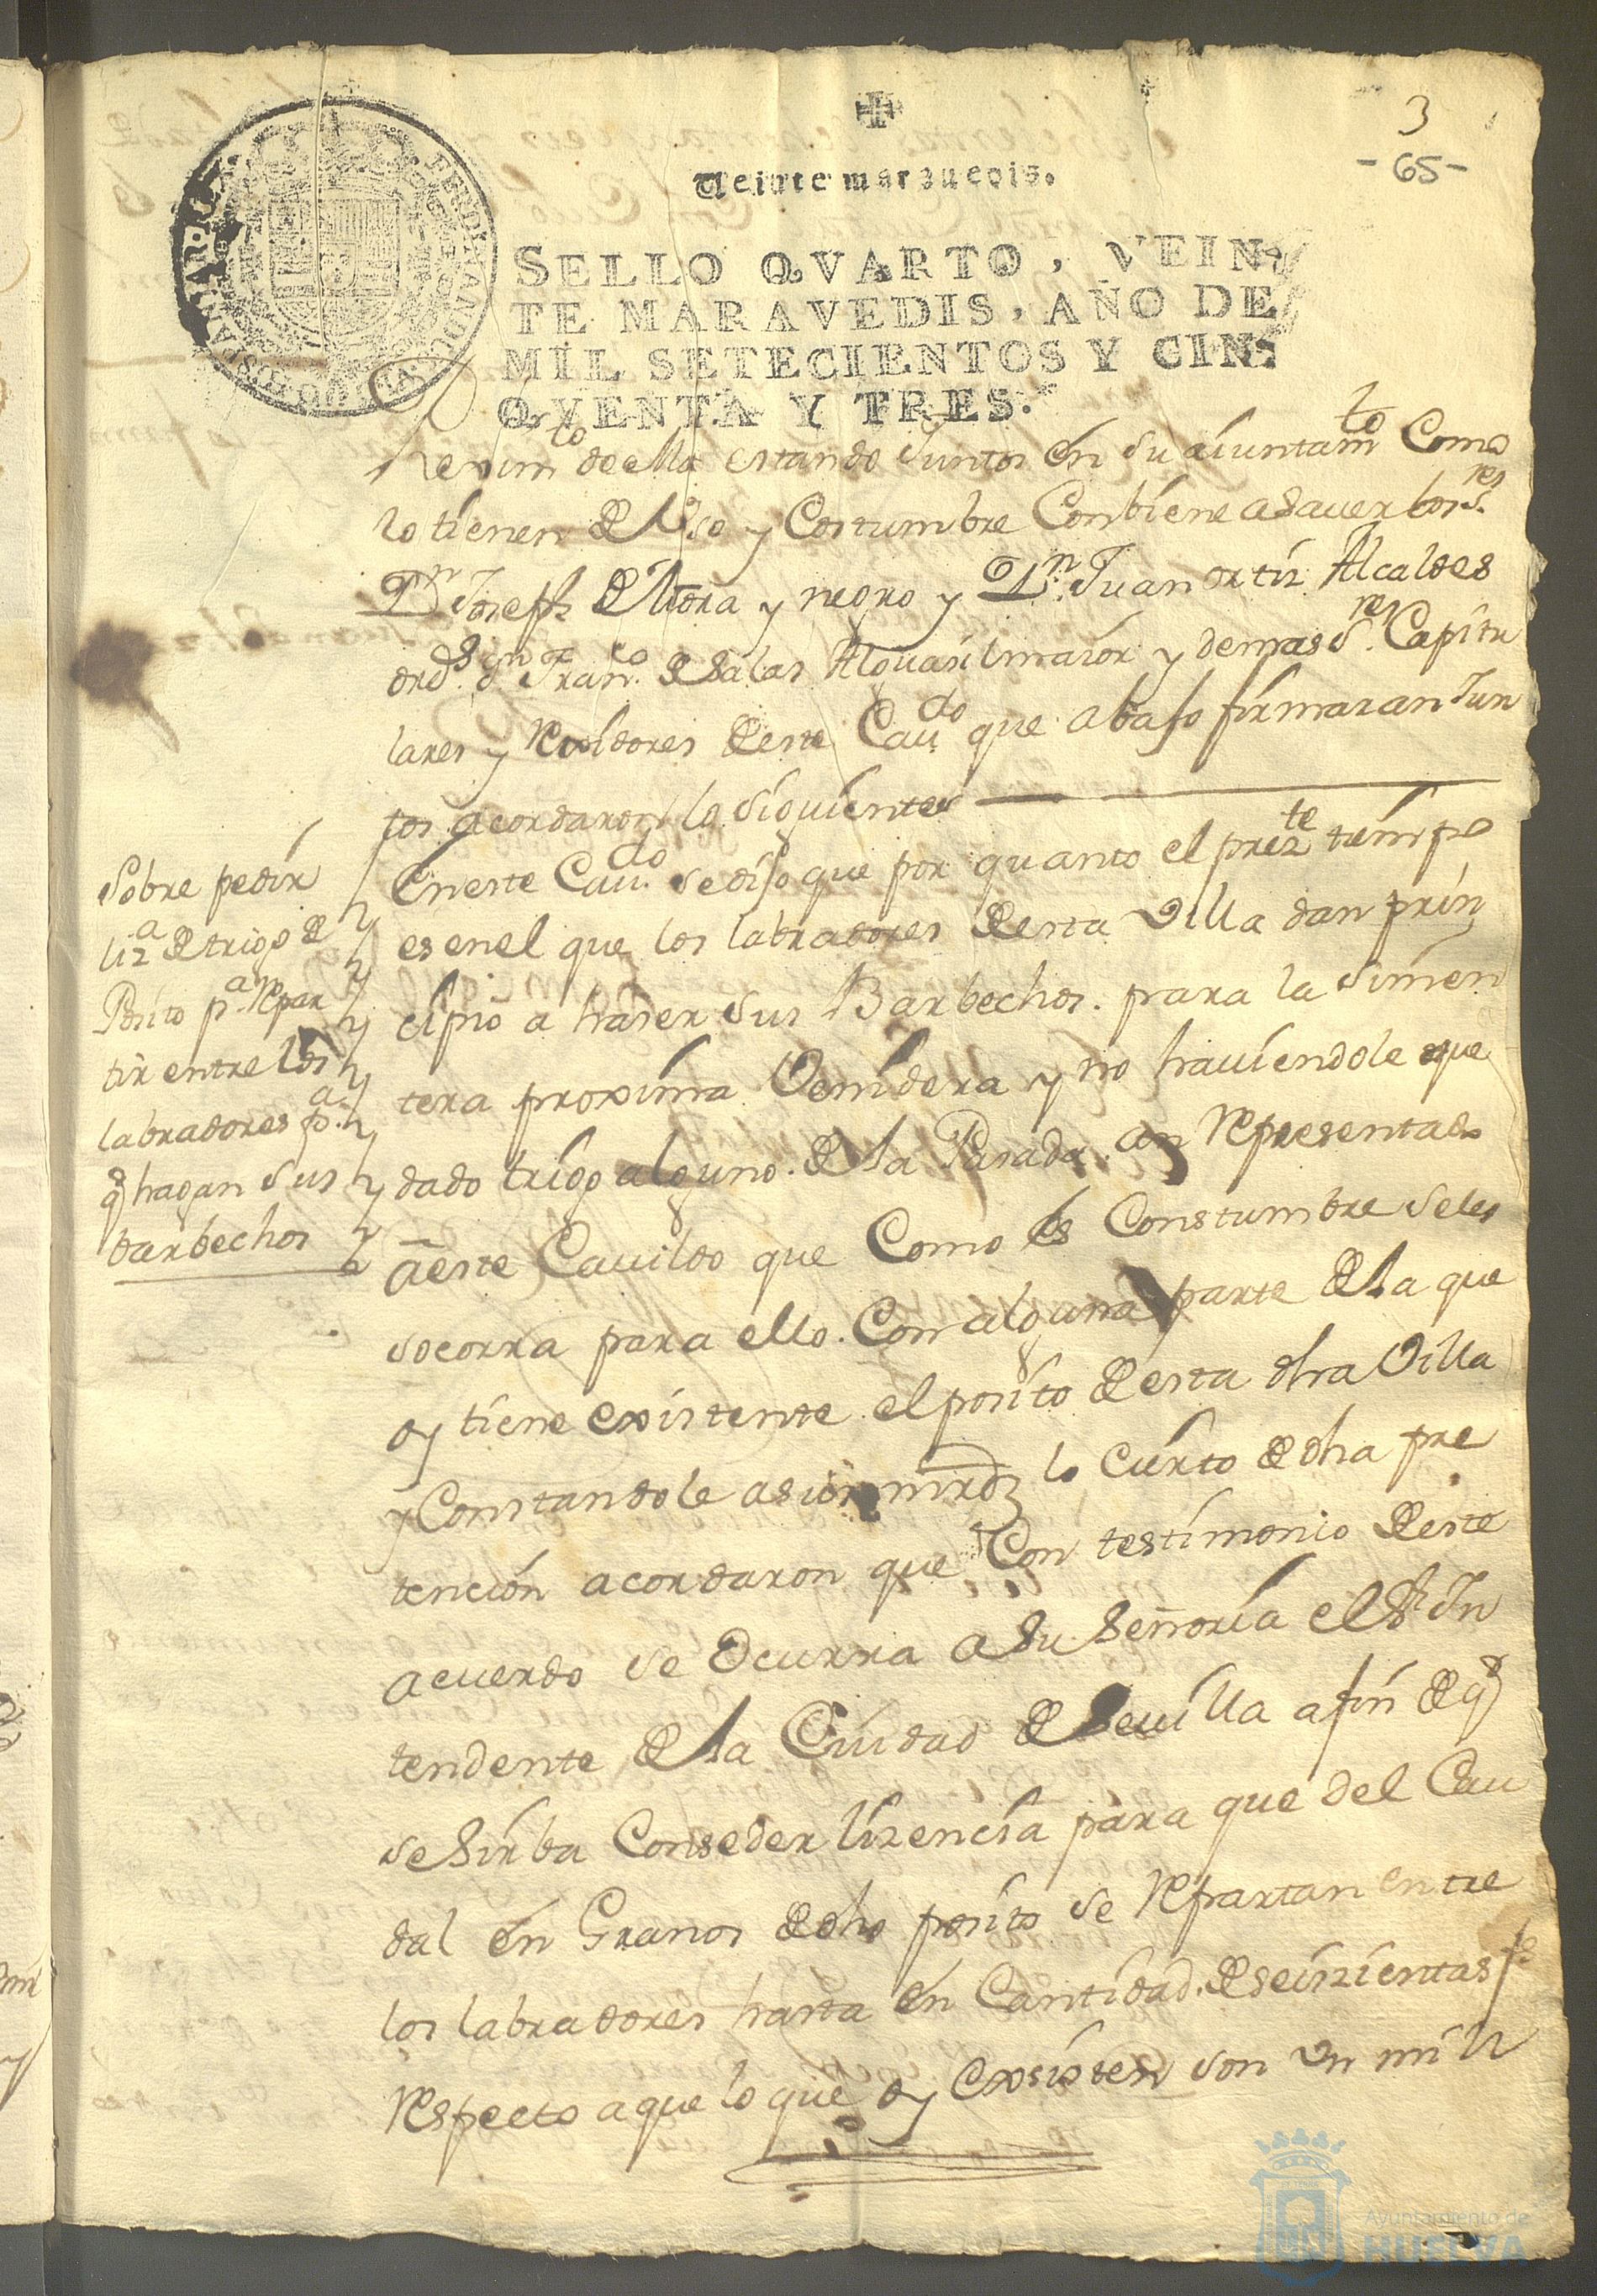 3
-65-
Veinte marauedis.
SELLO QVARTO, VEIN-
TE MARAVEDIS, AÑO DE
MIL SETECIENTOS Y CIN-
QVENTA Y TRES.
Rexim.to de ella estando Juntos en su aiuntam.to Como
lo tienen de Uso y Costumbre Conbiene a Sauer los S.res
D.n Joseph de Mora y negro y D.n Juan ortiz Alcaldes
ord.s D.n Fran.co de Salas Alguasil maior y demas S.res Capitu
lares y Rexidores de este Cau.do que abajo firmaran Jun
tos acordaron lo siguiente
Sobre pedir
liz.a de trigo de
Posito p.a Repar
tir entre los
labradores p.a
q hagan sus
barbechos
En este Cau.do se dijo que por quanto el prez.te tiempo
es en el que los labradores de esta Villa dan prin
cipio a haser sus Barbechos. para la simen
tera proxima Venidera y no hauiendole que
dado trigo alguno. de la Pasada. an Representado
a este Cauildo que Como es Constumbre se les
socorra para ello. Con alguna parte de la que
oy tiene existente el posito de esta dha Villa
y Constandole a sus mrds lo Cierto de dha pre
tencion acordaron que Con testimonio de este
acuerdo se Ocurra a Su Señoria el S.r In
tendente de la Ciudad de Seuilla a fin de q
se Sirba Conseder lizencia para que del Cau
dal en Granos de dho posito se Repartan entre
los labradores hasta en Cantidad. de seizientas f.s
Respecto a que lo que oy Exsisten son Un mill
Ayuntamiento de
HUELVA